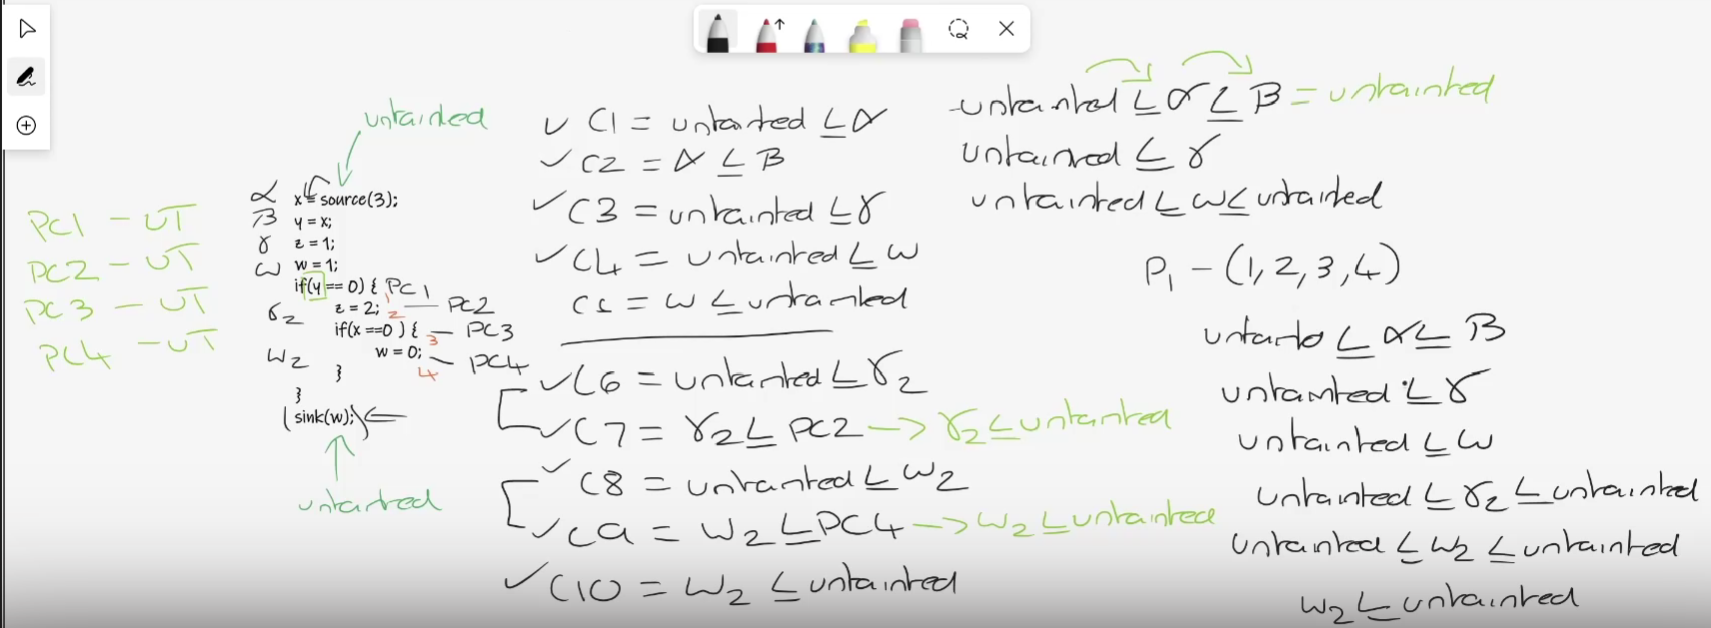 untainted
α x = source(3);
β y = x;
γ z = 1;
ω w = 1;
if(y == 0) { PC1
1
γ2 z = 2; PC2
2
if(x ==0 ) { PC3
3
ω2 w = 0; PC4
4
}
}
sink(w);
untainted
PC1 - UT
PC2 - UT
PC3 - UT
PC4 - UT
✓ C1 = untainted ≤ α
✓ C2 = α ≤ β
✓ C3 = untainted ≤ γ
✓ C4 = untainted ≤ ω
C5 = ω ≤ untainted
✓ C6 = untainted ≤ γ2
✓ C7 = γ2 ≤ PC2 -> γ2 ≤ untainted
✓ C8 = untainted ≤ ω2
✓ C9 = ω2 ≤ PC4 -> ω2 ≤ untainted
✓ C10 = ω2 ≤ untainted
untainted ≤ α ≤ β = untainted
untainted ≤ γ
untainted ≤ ω ≤ untainted
P1 - (1, 2, 3, 4)
≤ α ≤ β
untainted ≤ γ
untainted ≤ ω
untainted ≤ γ2 ≤ untainted
untainted ≤ ω2 ≤ untainted
ω2 ≤ untainted